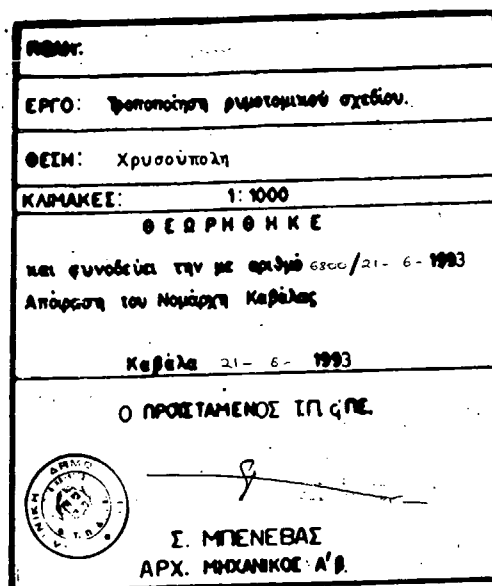 ΕΡΓΟ: Τροποποίηση ρυμοτομικού σχεδίου.
ΘΕΣΗ: Χρυσούπολη
ΚΛΙΜΑΚΕΣ: 1:1000
ΘΕΩΡΗΘΗΚΕ
και συνοδεύει την με αριθμό 6800/21-6-1993
Απόφαση του Νομάρχη Καβάλας
Καβάλα 21-6-1993
Ο ΠΡΟΪΣΤΑΜΕΝΟΣ Τ.Π. ΠΕ.
Σ. ΜΠΕΝΕΒΑΣ
ΑΡΧ. ΜΗΧΑΝΙΚΟΣ Α'β.